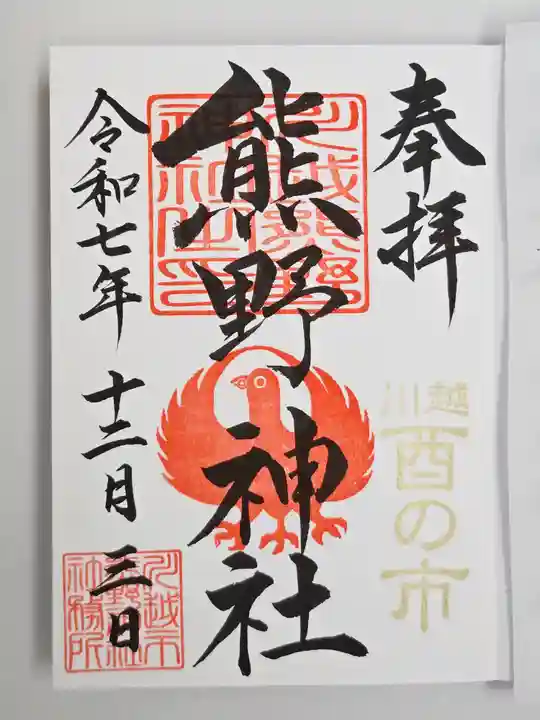 奉拝
川越
酉の市
熊野神社
川越熊野
神社之印
令和七年 十二月 三日
川越市
熊野神社
社務所